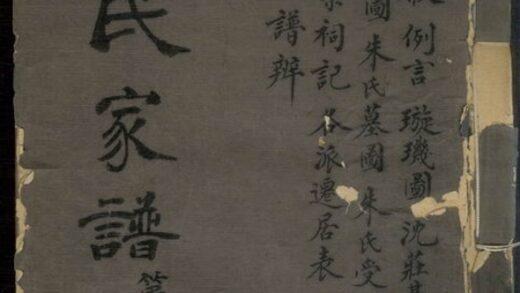 例言 璇璣圖 沈莊
圖 朱氏墓圖 朱氏受
祠記 各派遷居表
譜辨
氏家譜 第